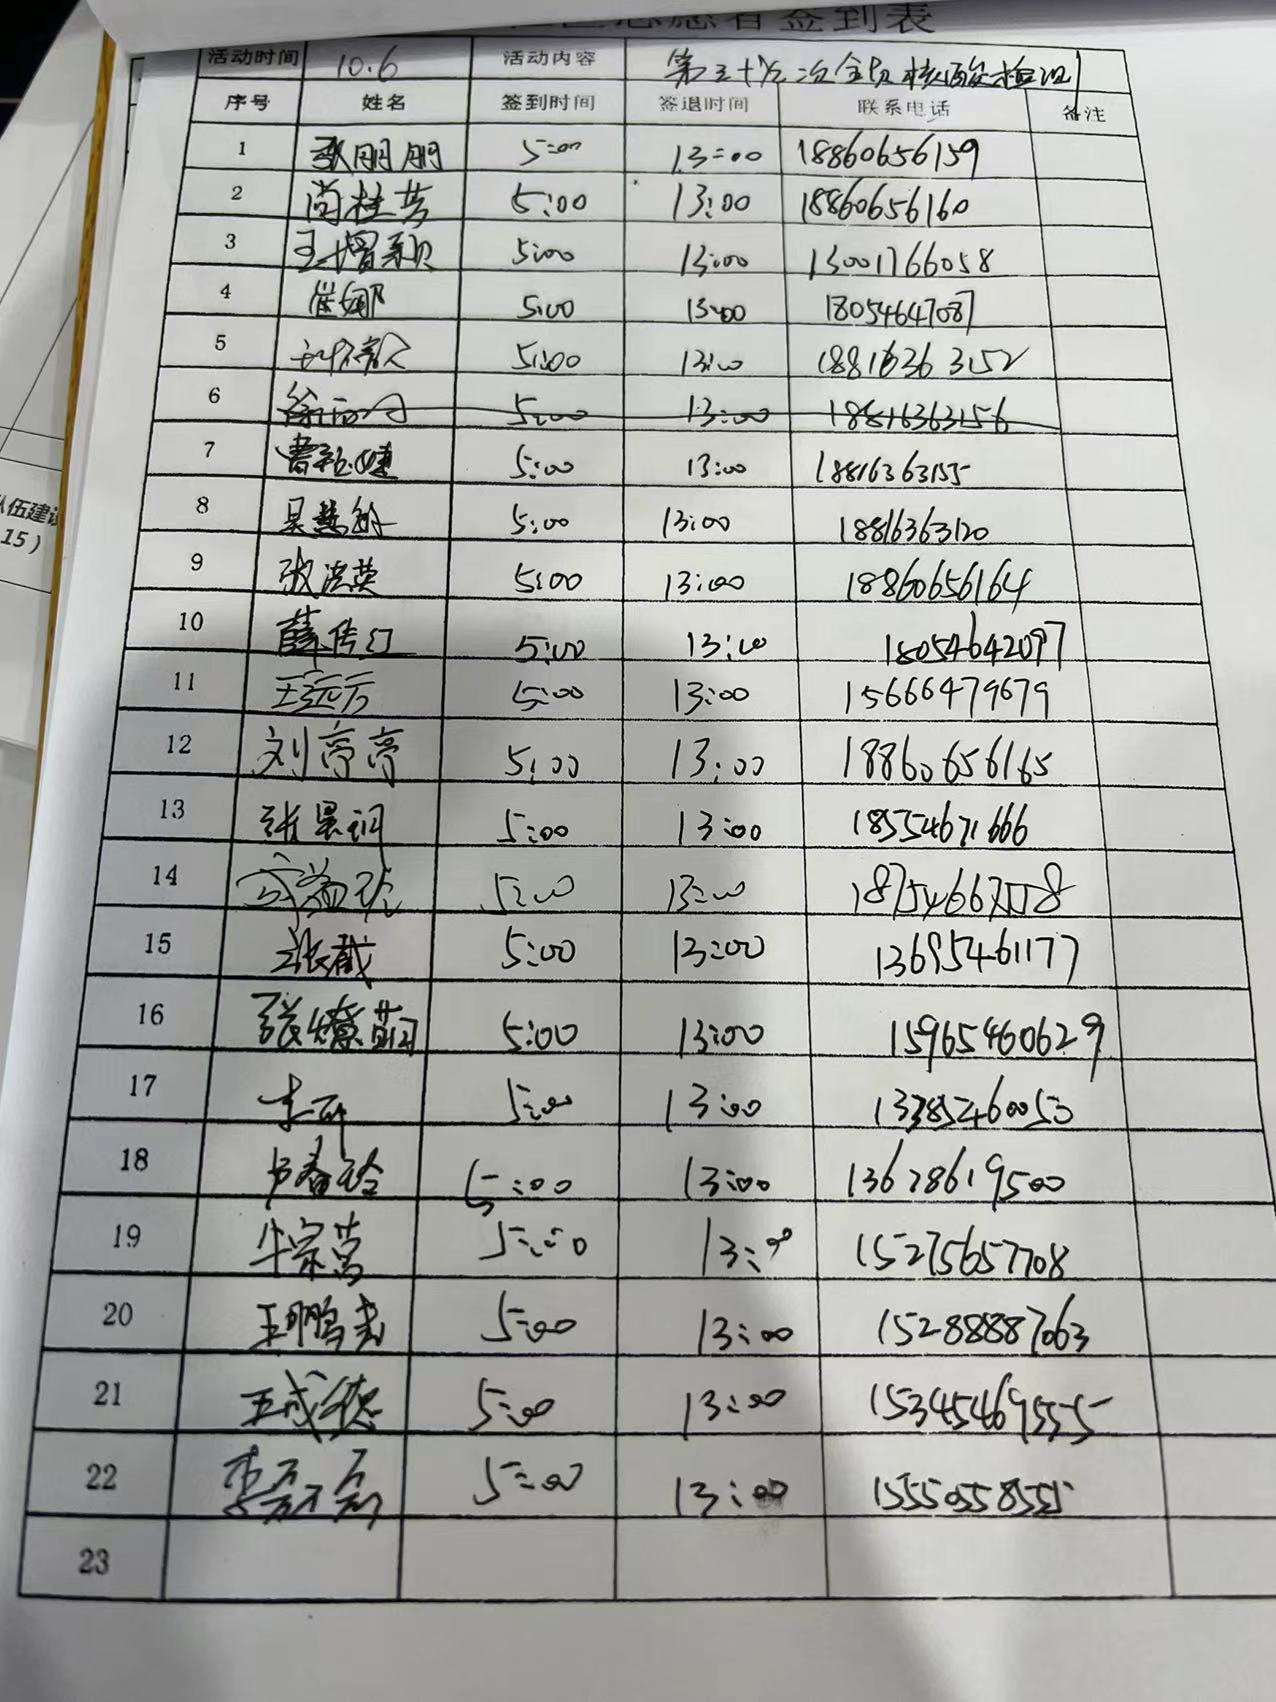 志愿者签到表
活动时间 10.6 活动内容 第三十 次全员核酸检测
序号 姓名 签到时间 签退时间 联系电话 备注
1 朋朋 5:00 13:00 18860656159
2 尚桂芳 5:00 13:00 18860656160
3 王增颖 5:00 13:00 13001766058
4 崔娜 5:00 13:00 18054647087
5 5:00 13:00 18816363152
6 徐 5:00 13:00 18816363156
7 曹 婕 5:00 13:00 18816363155
8 吴慧敏 5:00 13:00 18816363120
9 张洪英 5:00 13:00 18860656164
10 薛传江 5:00 13:00 18054642097
11 王运方 5:00 13:00 15666479679
12 刘亭亭 5:00 13:00 18860656165
13 张昱训 5:00 13:00 18554671666
14 5:00 13:00
15 张戬 5:00 13:00 13695461177
16 张燎萌 5:00 13:00 15965460629
17 5:00 13:00 13385460050
18 春玲 5:00 13:00 13628619500
19 牛宗营 5:00 13:00 15275657708
20 王鹏 5:00 13:00 15288887063
21 王成德 5:00 13:00 15345469555
22 李 5:00 13:00 15550558555
23
队伍建设
15）